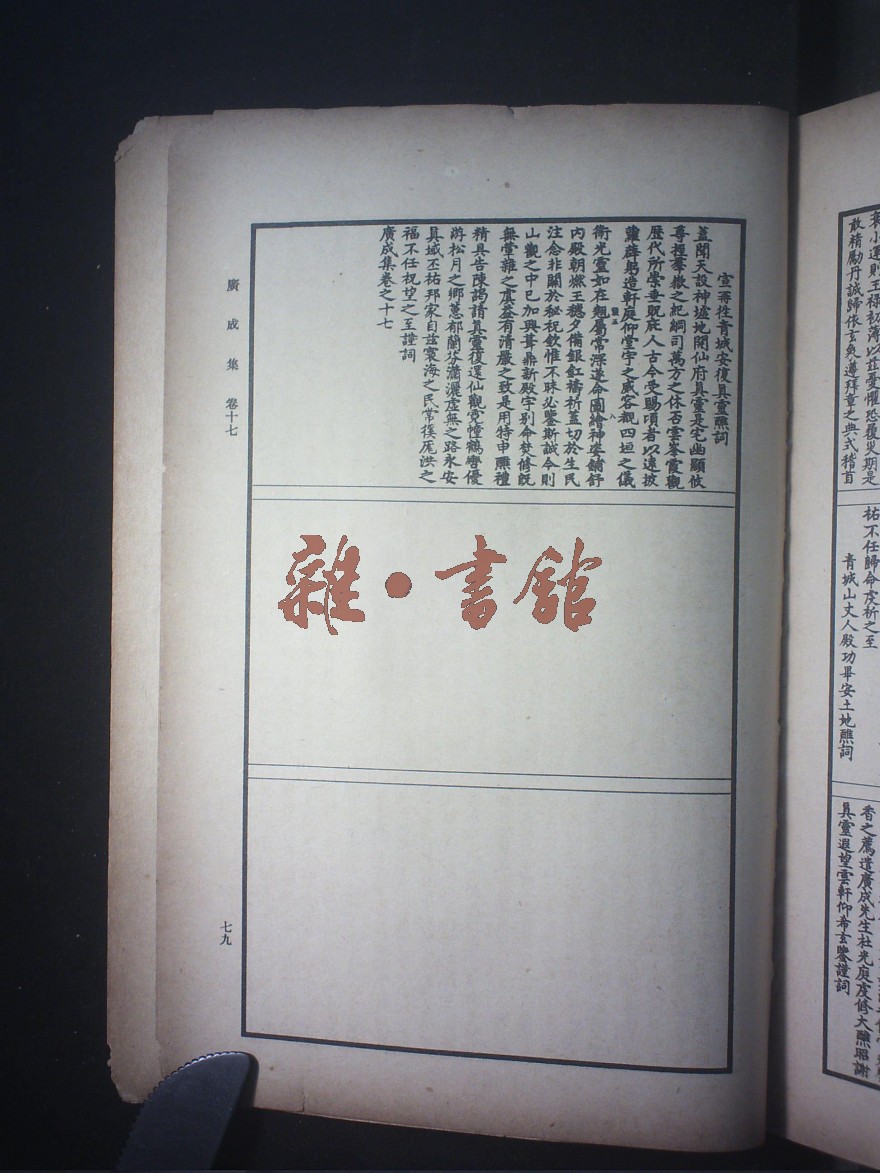 袞小運則王祿初薄以茲憂懼恐履災期是
敢精勵丹誠歸依玄奐遵拜章之典式稽首
祐不任歸命虔祈之至
青城山丈人殿功畢安土地醮詞
香之薦遣廣成先生杜光庭虔修大醮昭謝
真靈遐望雲軒仰希玄鑒謹詞
宣再往青城安復真靈醮詞
蓋聞天設神墟地開仙府真靈是宅幽顯攸
尊抠羣嶽之紀綱司萬方之休否雲峯霞觀
歷代所崇垂貺庇人古今受賜頃者以遠披
蘿薜躬造軒庭仰堂宇之威容觀四垣之儀
衛光靈如在翹屬常深遂命圖繪神姿鋪舒
內殿朝燃王穗夕備銀釭禱祈蓋切於生民
注念非關於秘祝欽惟不昧必鑒斯誠今則
山觀之中已加興葺鼎新殿宇別命焚修既
無喧雜之虞益有清嚴之致是用特申醮禮
精具告陳謁請真靈復還仙觀霓幢鶴轡優
游松月之鄉蕙郁蘭芬瀟灑虛無之路永安
真域丕祐邦家自茲寰海之民常徯厖洪之
福不任祝望之至謹詞
廣成集卷之十七
廣成集 卷十七
七九
雜•書館